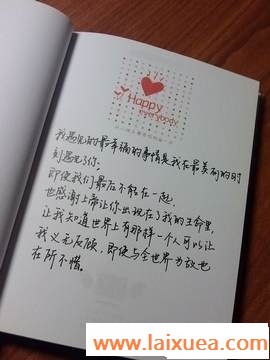 Happy
everybody
我遇见的最幸福的事情是我在最美丽的时
刻遇见了你。
即使我们最后不能在一起，
也感谢上帝让你出现在了我的生命里，
让我知道世界上有那样一个人可以让
我义无反顾，即使与全世界为敌也
在所不惜。
www.laixuea.com